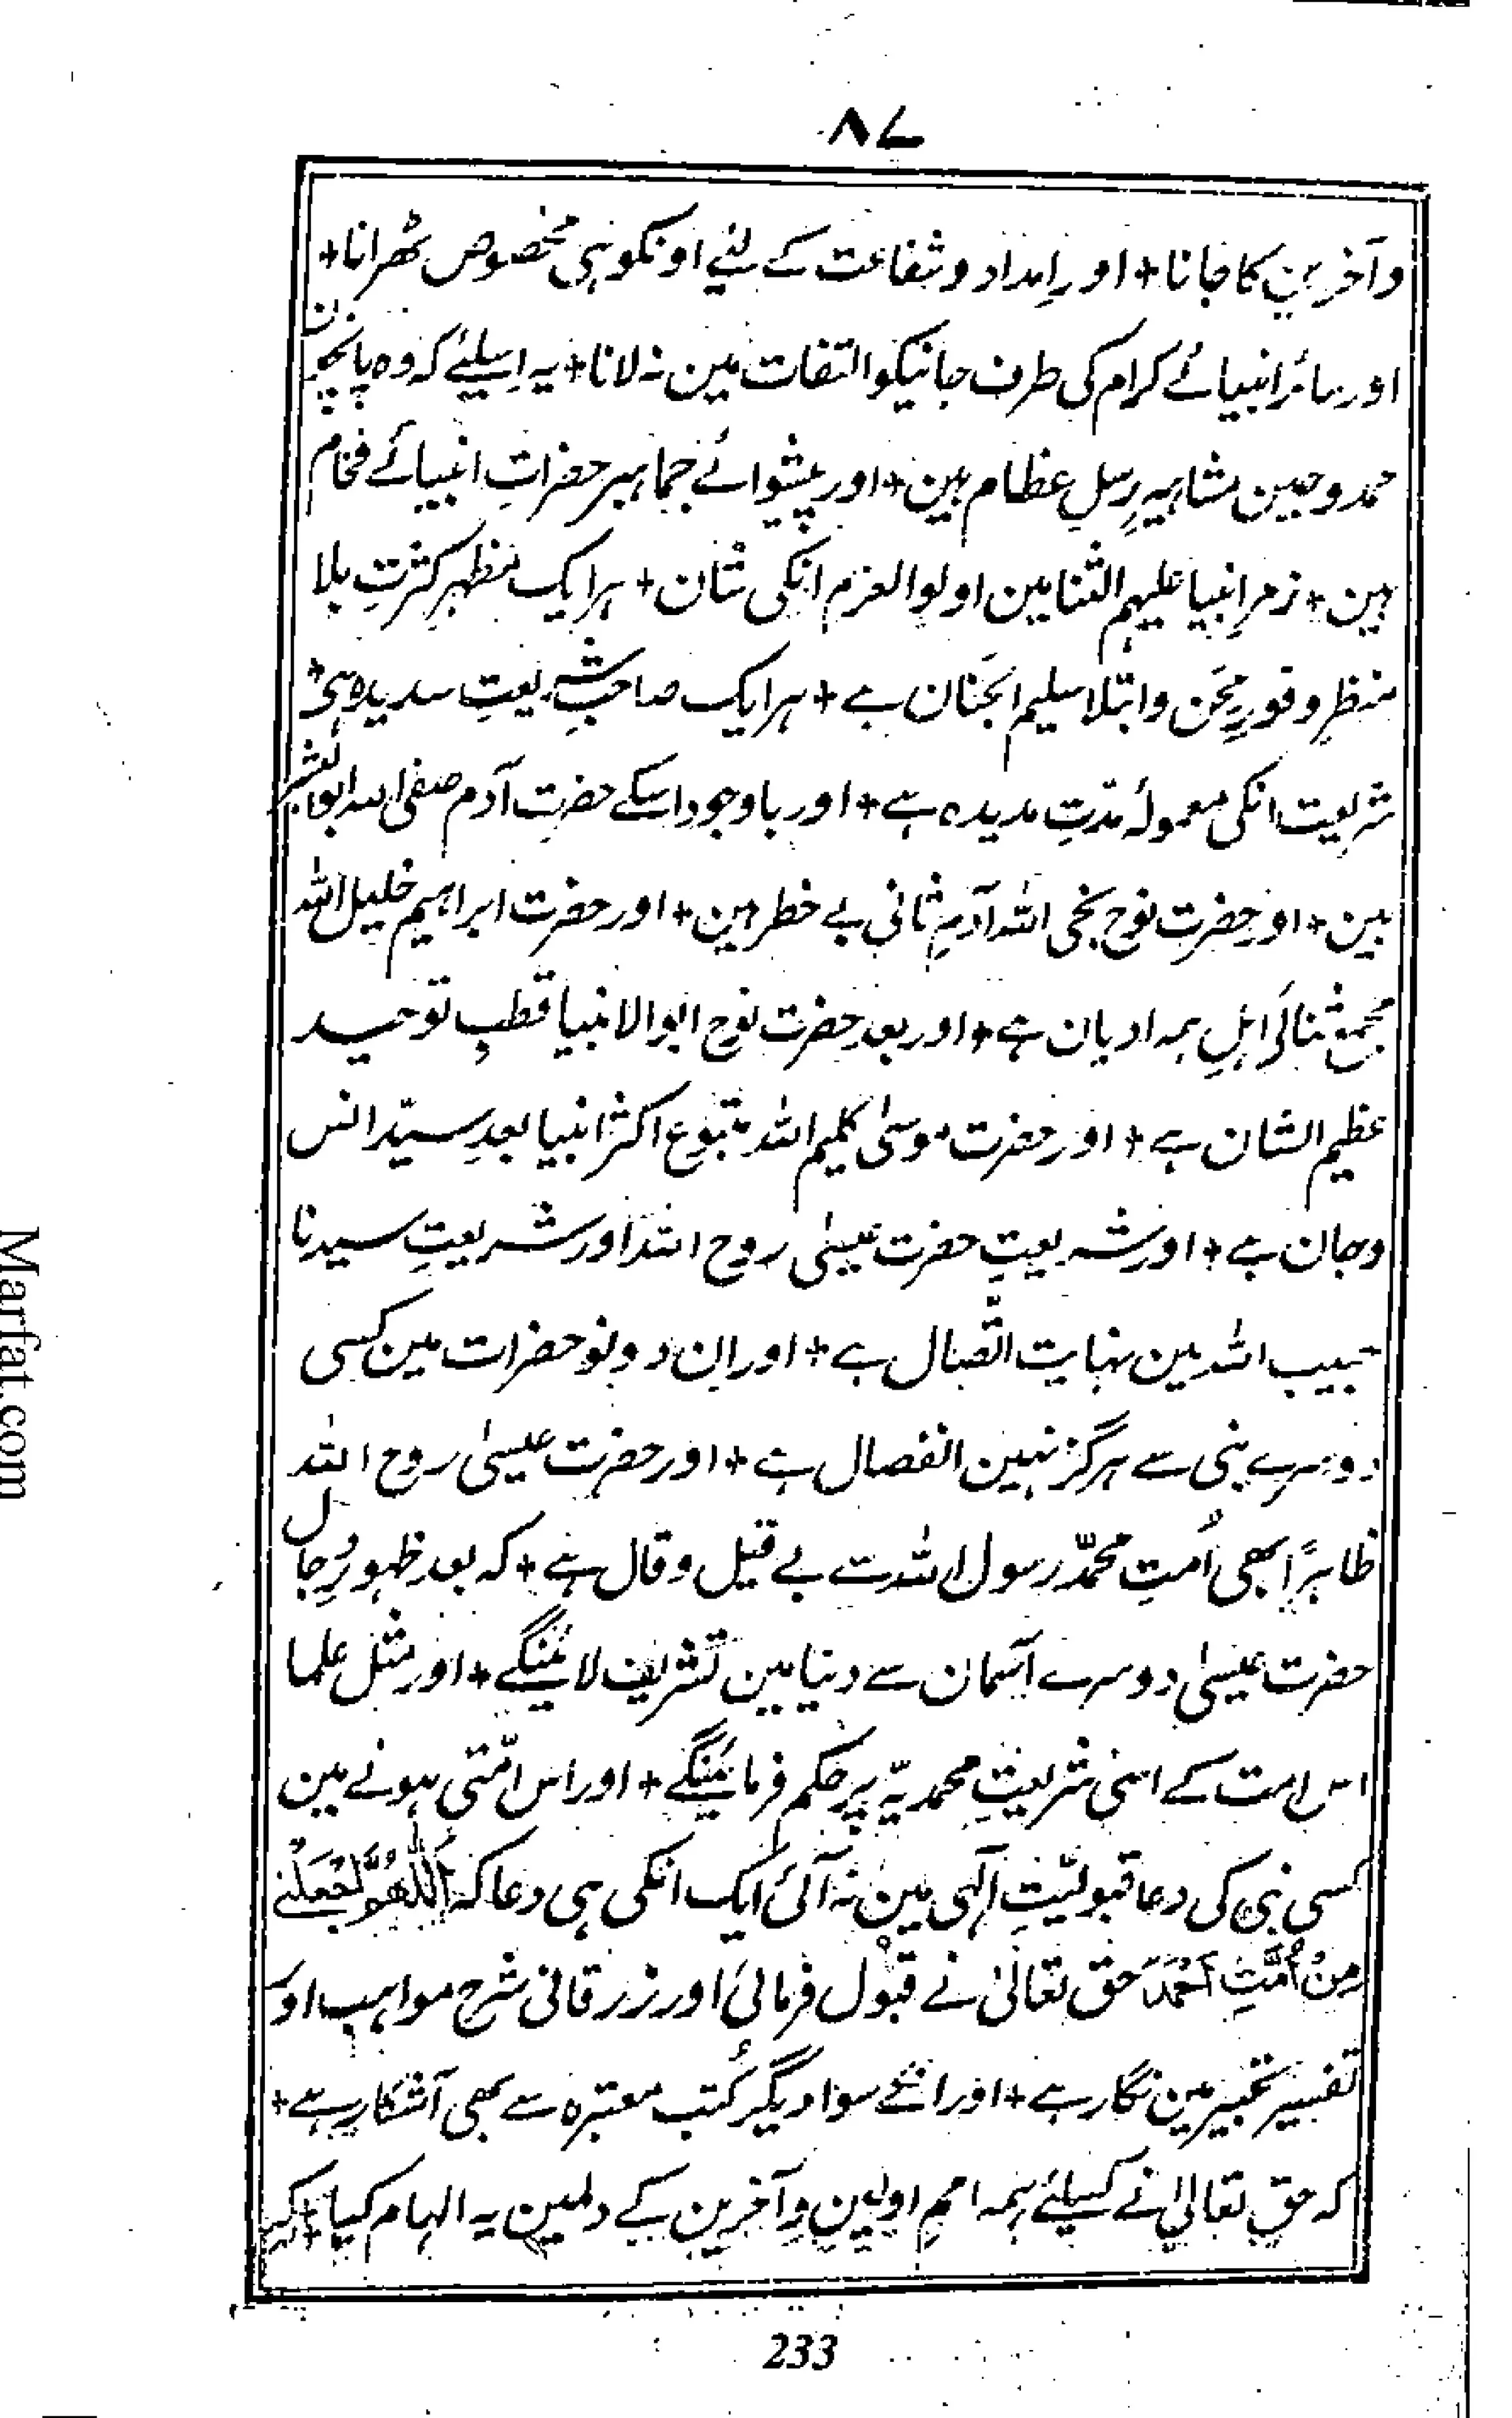 ۸۷
وآخرین کا جانا + اور اِمداد و شفاعت کے لئے اونکو ہی مخصوص ٹھرانا +
اور سائر انبیائے کرام کی طرف جانیکو التفات مین نہ لانا + یہ اِسلیئے کہ وہ پانچون
ممدوحین مشاہیرِ رسلِ عظام ہین + اور پیشوائے جماہیر حضراتِ انبیائے فخام
ہین + زمرِ انبیا علیہم الثنا مین اولوا العزم انکی شان + ہر ایک مظہرِ کثرتِ بلا
منظرِ وفورِ محَن وابتلا سلیم الجَنان ہے + ہر ایک صاحبِ شریعتِ سدیدہ ہی +
شریعت انکی معمولۂ مدّتِ مدیدہ ہے + اور باوجود اسکے حضرت آدم صفی اللہ ابو البشر
ہین + اور حضرت نوح نجی اللہ آدمِ ثانی بے خطر ہین + اور حضرت ابراہیم خلیل اللہ
مجمعِ ثنائے اہلِ ہمہ ادیان ہے + اور بعدِ حضرت نوح ابو الانبیا قطبِ توحید
عظیم الشان ہے + اور حضرت موسیٰ کلیم اللہ متبوع اکثر انبیا بعدِ سیّد انس
وجان ہے + اور شریعتِ حضرت عیسیٰ روح اللہ اور شریعتِ سیدنا
حبیب اللہ مین نہایت اتّصال ہے + اور اِن دونو حضرات مین کسی
دوسرے نبی سے ہرگز نہین انفصال ہے + اور حضرت عیسیٰ روح اللہ
ظاہرًا بھی اُمتِ محمّد رسول اللہ سے بے قیل وقال ہے + کہ بعد ظہورِ دجال
حضرت عیسیٰ دوسرے آسمان سے دنیا مین تشریف لائینگے + اور مثل علما
اس امت کے اسی شریعتِ محمدیہّ پر حکم فرمائینگے + اور اس امّتی ہونے مین
کسی نبی کی دعا قبولیّتِ اِلٰہی مین نہ آئی ایک انکی ہی دعا کہ اَللّٰھُمَّ اجْعَلْنِے
مِنْ اُمَّتِ اَحْمَدَ حق تعالیٰ نے قبول فرمائی اور زرقانی شرح مواہب اور
تفسیر تجبیر مین نگار ہے + اور انکے سوا دیگر کُتب معتبرہ سے بھی آشکار ہے +
کہ حق تعالیٰ نے کسلیئے ہمہ اممِ اولین وآخرین کے دلمین یہ الہام کیا + کہ
233
Marfat.com